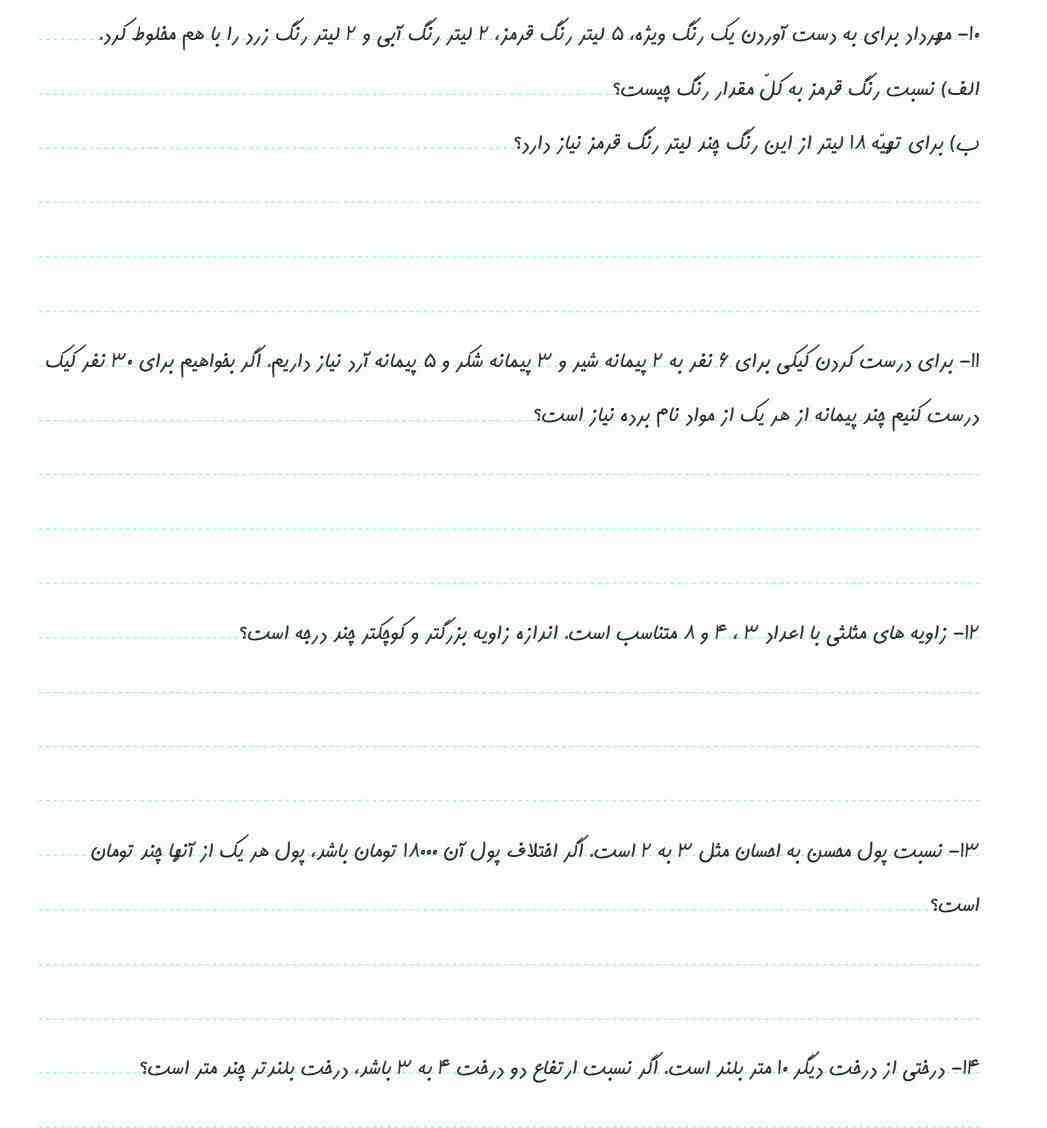 ۱۰- مهرداد برای به دست آوردن یک رنگ ویژه، ۵ لیتر رنگ قرمز، ۲ لیتر رنگ آبی و ۲ لیتر رنگ زرد را با هم مخلوط کرد.
الف) نسبت رنگ قرمز به کلّ مقدار رنگ چیست؟
ب) برای تهیّه ۱۸ لیتر از این رنگ چند لیتر رنگ قرمز نیاز دارد؟
۱۱- برای درست کردن کیکی برای ۶ نفر به ۲ پیمانه شیر و ۳ پیمانه شکر و ۵ پیمانه آرد نیاز داریم. اگر بخواهیم برای ۳۰ نفر کیک
درست کنیم چند پیمانه از هر یک از مواد نام برده نیاز است؟
۱۲- زاویه های مثلثی با اعداد ۳ ، ۴ و ۸ متناسب است. اندازه زاویه بزرگتر و کوچکتر چند درجه است؟
۱۳- نسبت پول محسن به احسان مثل ۳ به ۲ است. اگر اختلاف پول آن ۱۸۰۰۰ تومان باشد، پول هر یک از آنها چند تومان
است؟
۱۴- درختی از درخت دیگر ۱۰ متر بلند است. اگر نسبت ارتفاع دو درخت ۴ به ۳ باشد، درخت بلندتر چند متر است؟